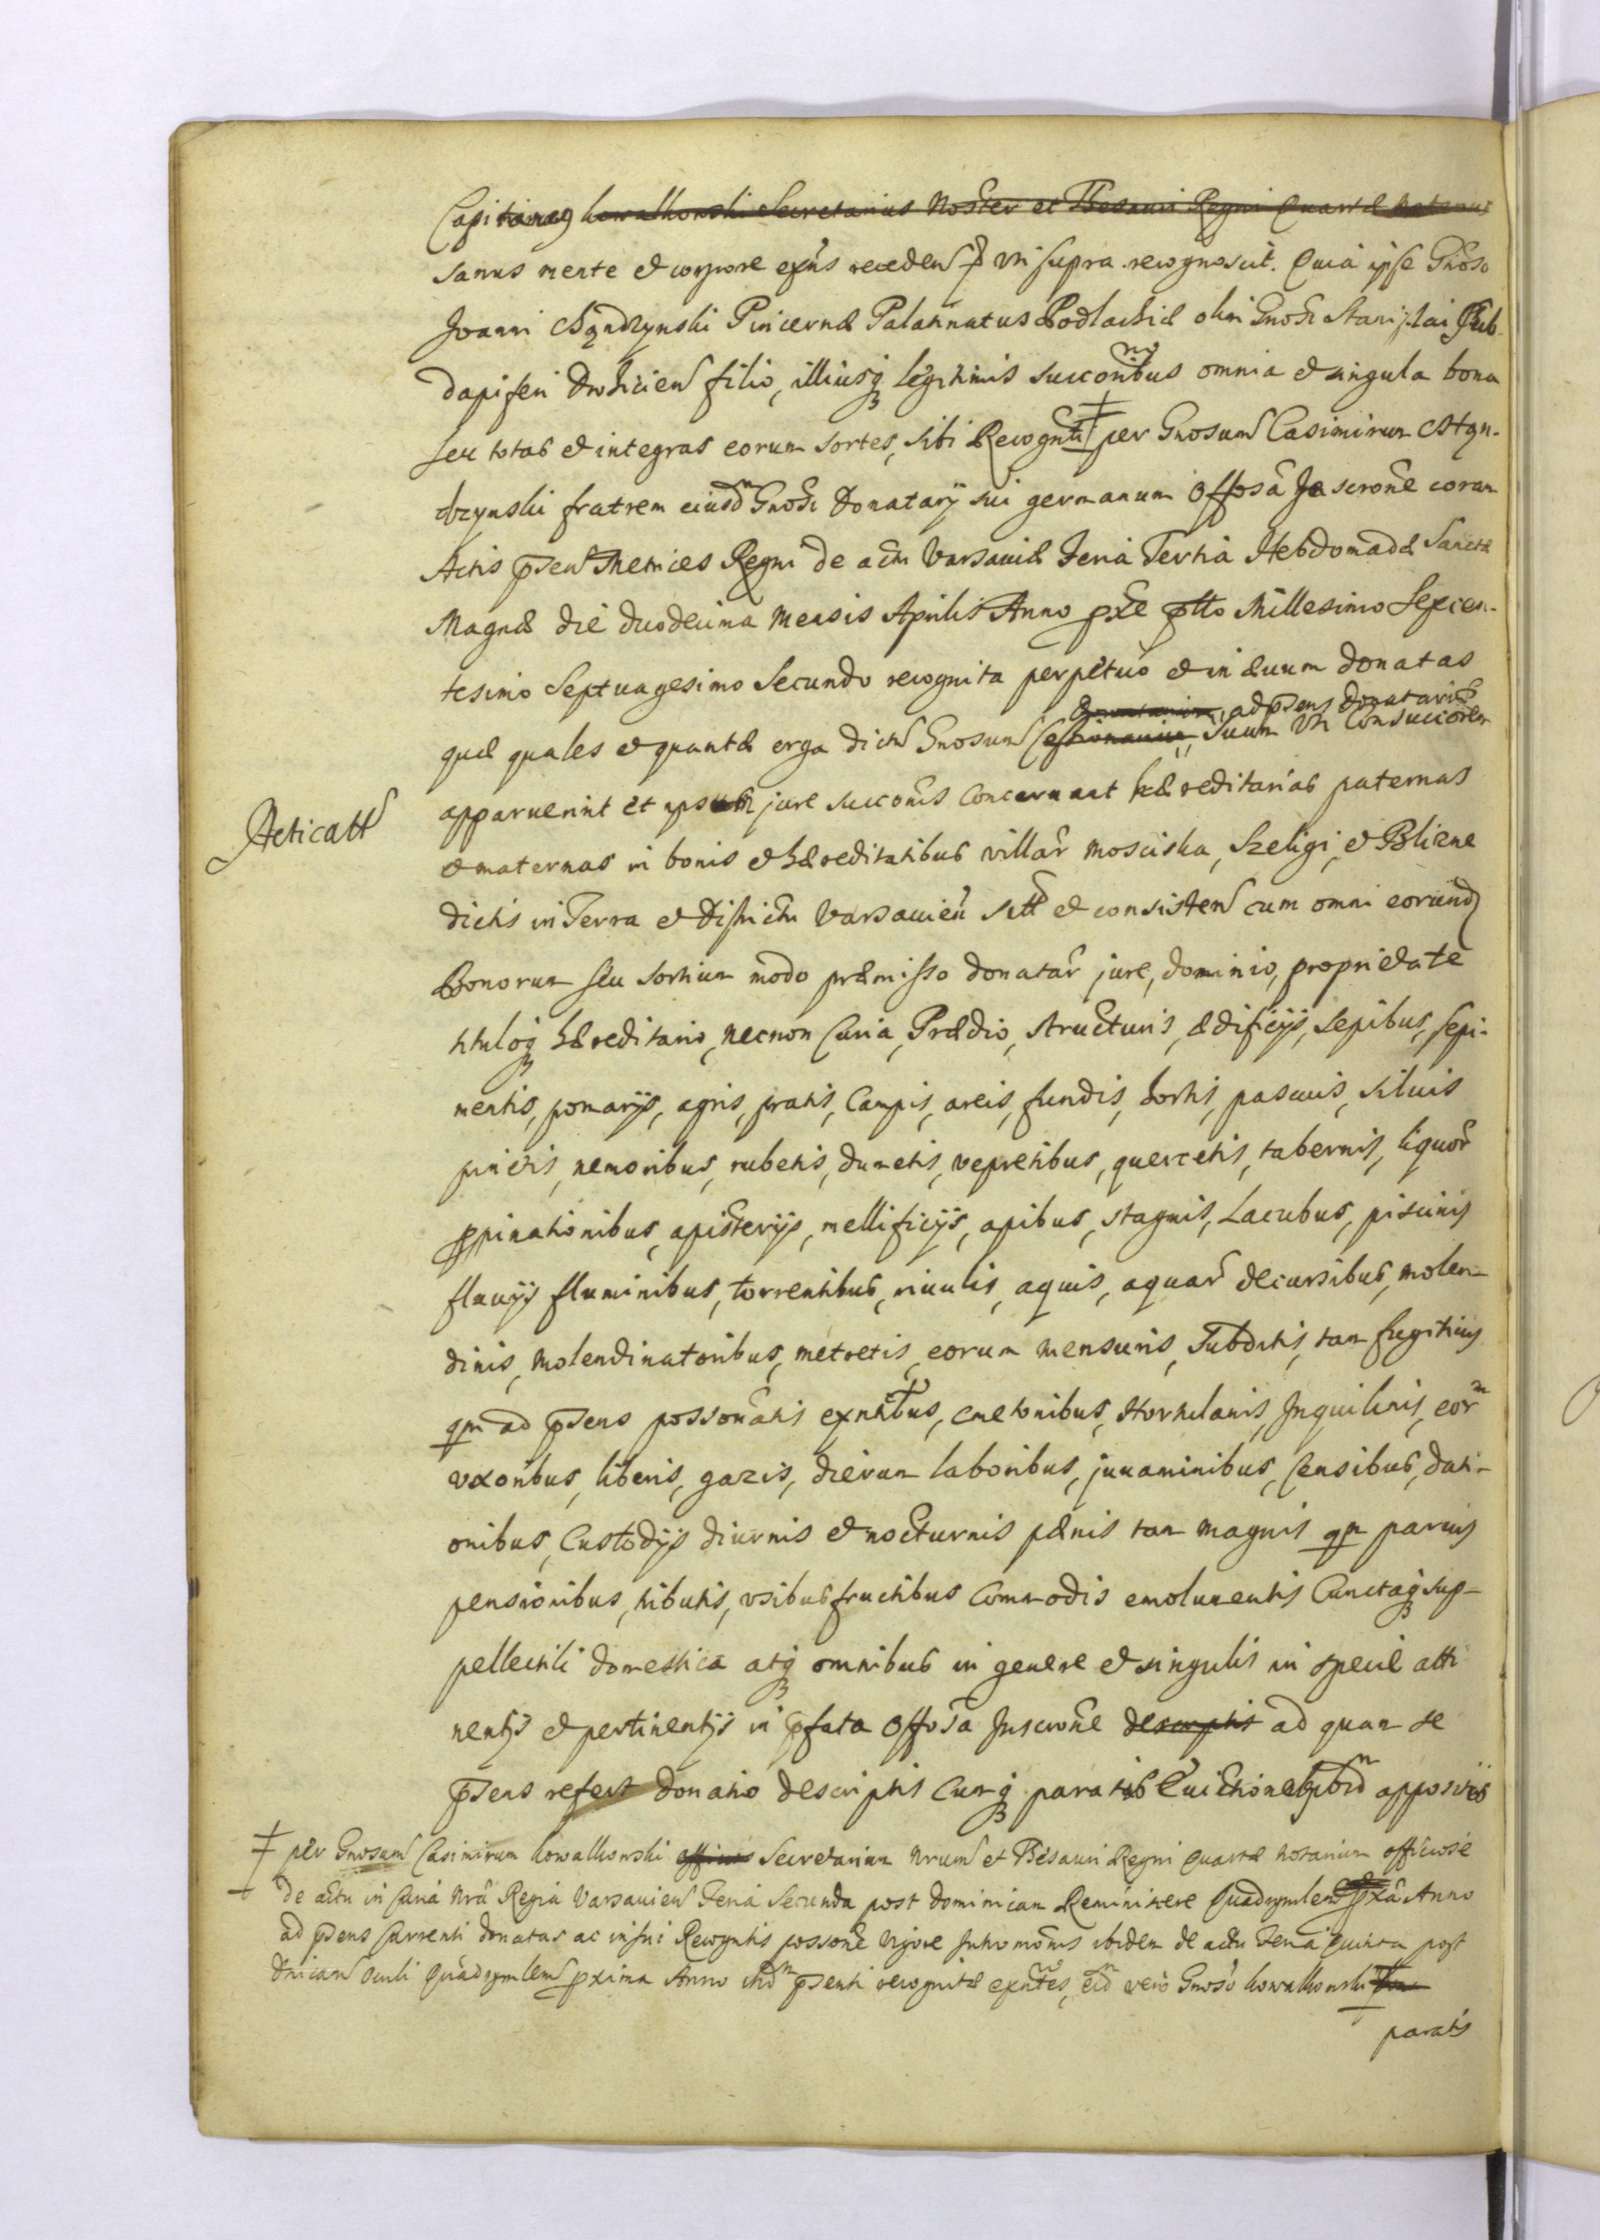 Capitaneg Kowalkowski Secretarius Noster et Thesauri Regni Quartæ Notarius
sanus mente et corpore exñs receden̄ uti supra recognoscit. Quia ipse Gnoso
Joanni Pincernæ Palatinatus Podlachiæ olim Gnosi Stanislai Sub-
dapiferi Drohicien̄ filio, illiusq legitimis succoribus omnia et singula bona
seu totas et integras eorum sortes, sibi Recognti per Gnosum Casimirum
fratrem eiusd Gnosi Donatarij sui germanum Offosa Inscrone coram
Actis psen Metrices Regni de actu Varsaviæ Feria Tertia Hebdomadæ Sanctæ
Magnæ die duodecima Mensis Aprilis Anno pxe ptto Millesimo Sexcen-
tesimo Septuagesimo Secundo recognita perpetuo et in ævum donatas
ad psens Donatariu
quæ quales et quantæ erga dictu Gnosum Cessionarium, Suum uti Consuccorem
apparuerint et ipsum jure succonis concernant hæreditarias paternas
Acticatt
et maternas in bonis et hæreditatibus villar Mosciska, Szeligi, et Blizne
dictis in Terra et Districtu Varsavien sitt et consisten cum omni eorund
Bonorum seu sortium modo præmisso donatar jure, dominio, proprietate
tituloq hæreditario, necnon Curia, Prædio, structuris, ædificijs, sepibus, sepi-
mentis, pomarijs, agris, pratis, Campis, areis, fundis, hortis, pascuis, silvis
pinetis, nemoribus, rubetis, dumetis, vepretibus, quercetis, tabernis, liquor
ppinationibus, apisterijs, mellificijs, apibus, stagnis, Lacubus, piscinis
fluvijs fluminibus, torrentibus, rivulis, aquis, aquar decursibus, molen-
dinis, Molendinatoribus, metretis, eorum mensuris, Subditis, tam fugitivis
qm ad psens possonatis exntibus, cmetonibus, Hortulanis, Inquilinis, eor
uxoribus, liberis, gazis, dierum laboribus, juvaminibus, Censibus, dati-
onibus, Custodijs diurnis et nocturnis pænis tam magnis qm parvis
pensionibus, tributis, usibus fructibus Commodis emolumentis Cunctaq sup-
pellectili domestica atq omnibus in genere et singulis in specie atti
nentijs et pertinentijs in pfata Offosa Inscrone descriptis ad quam se
psens refert donatio descriptis Cumq paratis Evictione ibid appositis
per Gnosum Casimirum Kowalkowski officiose Secretarium Nrum et Thesauri Regni Quartæ Notarium officiose
de actu in Curia Nra Regia Varsavien Feria Secunda post Dominicam Reminiscere Quadrymlem pxa Anno
ad psens Currenti donatas ac in sui Recogntis possone vigore Intromonis ibidem de actu Feria Quinta post
Dnicam Oculi Quadrymlem pxima Anno itid psenti recognitæ exntes, eid vero Gnoso Kowalkowski
paratis